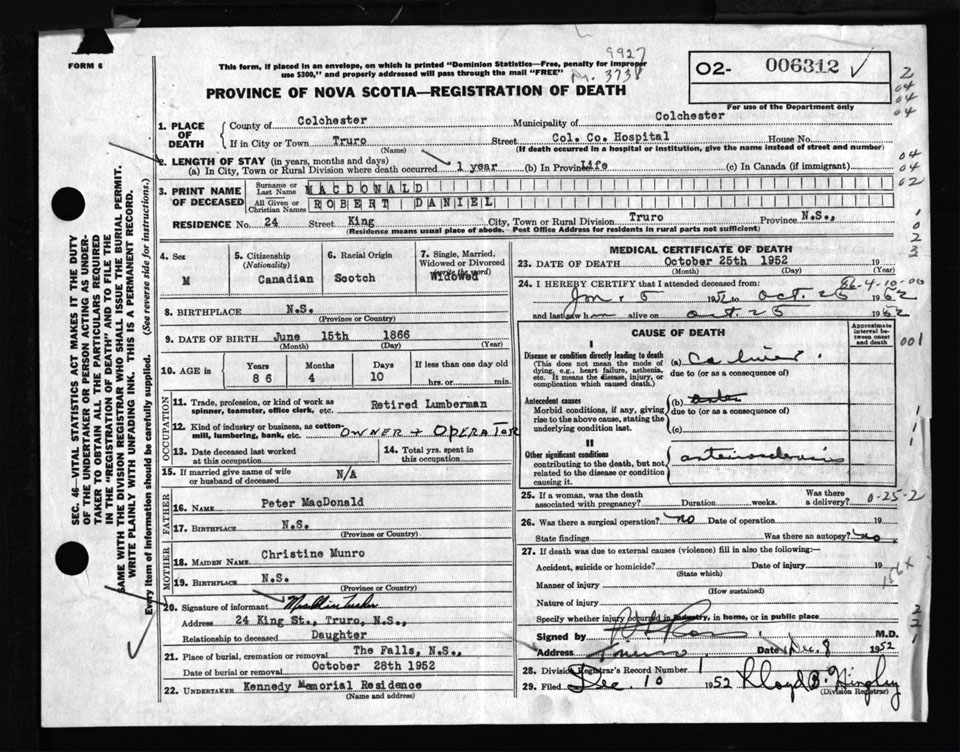 FORM 6
This form, if placed in an envelope, on which is printed "Dominion Statistics—Free, penalty for improper
use $300," and properly addressed will pass through the mail "FREE"
9927
3738
02- 006312 ✓
For use of the Department only
PROVINCE OF NOVA SCOTIA—REGISTRATION OF DEATH
1. PLACE OF DEATH
County of Colchester Municipality of Colchester
If in City or Town Truro Street Col. Co. Hospital House No.
(Name) (If death occurred in a hospital or institution, give the name instead of street and number)
2. LENGTH OF STAY (in years, months and days)
(a) In City, Town or Rural Division where death occurred 1 year (b) In Province Life (c) In Canada (if immigrant)
3. PRINT NAME OF DECEASED
Surname or Last Name MACDONALD
All Given or Christian Names ROBERT DANIEL
RESIDENCE No. 24 Street King City, Town or Rural Division Truro Province N.S.,
(Residence means usual place of abode. Post Office Address for residents in rural parts not sufficient)
4. Sex
M
5. Citizenship
(Nationality)
Canadian
6. Racial Origin
Scotch
7. Single, Married,
Widowed or Divorced
(write the word)
Widowed
8. BIRTHPLACE N.S.
(Province or Country)
9. DATE OF BIRTH June 15th 1866
(Month) (Day) (Year)
10. AGE in
Years Months Days If less than one day old
86 4 10 hrs. or min.
OCCUPATION
11. Trade, profession, or kind of work as
spinner, teamster, office clerk, etc. Retired Lumberman
12. Kind of industry or business, as cotton
mill, lumbering, bank, etc. OWNER + OPERATOR
13. Date deceased last worked
at this occupation
14. Total yrs. spent in
this occupation
15. If married give name of wife
or husband of deceased N/A
FATHER
16. Name Peter MacDonald
17. Birthplace N.S.
(Province or Country)
MOTHER
18. MAIDEN NAME Christine Munro
19. BIRTHPLACE N.S.
(Province or Country)
20. Signature of informant
Address 24 King St., Truro, N.S.,
Relationship to deceased Daughter
21. Place of burial, cremation or removal The Falls, N.S.,
Date of burial or removal October 28th 1952
22. UNDERTAKER Kennedy Memorial Residence
(Name and address)
MEDICAL CERTIFICATE OF DEATH
23. DATE OF DEATH October 25th 1952 19
(Month) (Day) (Year)
24. I HEREBY CERTIFY that I attended deceased from:
86-4-10-00
1952 to Oct. 25 1952
and last saw h m alive on Oct. 25 1952
CAUSE OF DEATH
Approximate
interval between
onset
and death
I
Disease or condition directly leading to death
(This does not mean the mode of
dying, e.g., heart failure, asthenia,
etc. It means the disease, injury, or
complication which caused death.)
(a)
due to (or as a consequence of)
Antecedent causes
Morbid conditions, if any, giving
rise to the above cause, stating the
underlying condition last.
(b)
due to (or as a consequence of)
(c)
II
Other significant conditions
contributing to the death, but not
related to the disease or condition
causing it.
arteriosclerosis
25. If a woman, was the death
associated with pregnancy? Duration weeks. Was there
a delivery?
0-25-2
26. Was there a surgical operation? no Date of operation 19
State findings Was there an autopsy? no
27. If death was due to external causes (violence) fill in also the following:
Accident, suicide or homicide? Date of injury 19
(State which)
Manner of injury
(How sustained)
Nature of injury
Specify whether injury occurred in industry, in home, or in public place
Signed by M.D.
Address Truro Date Dec. 8 1952
28. Division Registrar's Record Number 1
29. Filed Dec. 10 1952
(Division Registrar)
SEC. 46—VITAL STATISTICS ACT MAKES IT THE DUTY
OF THE UNDERTAKER OR PERSON ACTING AS UNDER-
TAKER TO OBTAIN ALL THE PARTICULARS REQUIRED
IN THE "REGISTRATION OF DEATH" AND TO FILE THE
SAME WITH THE DIVISION REGISTRAR WHO SHALL ISSUE THE BURIAL PERMIT.
WRITE PLAINLY WITH UNFADING INK. THIS IS A PERMANENT RECORD.
Every item of information should be carefully supplied. (See reverse side for instructions.)
2
04
04
04
04
04
02
1
0
2
3
001
1
1
1
156X
2
2
1